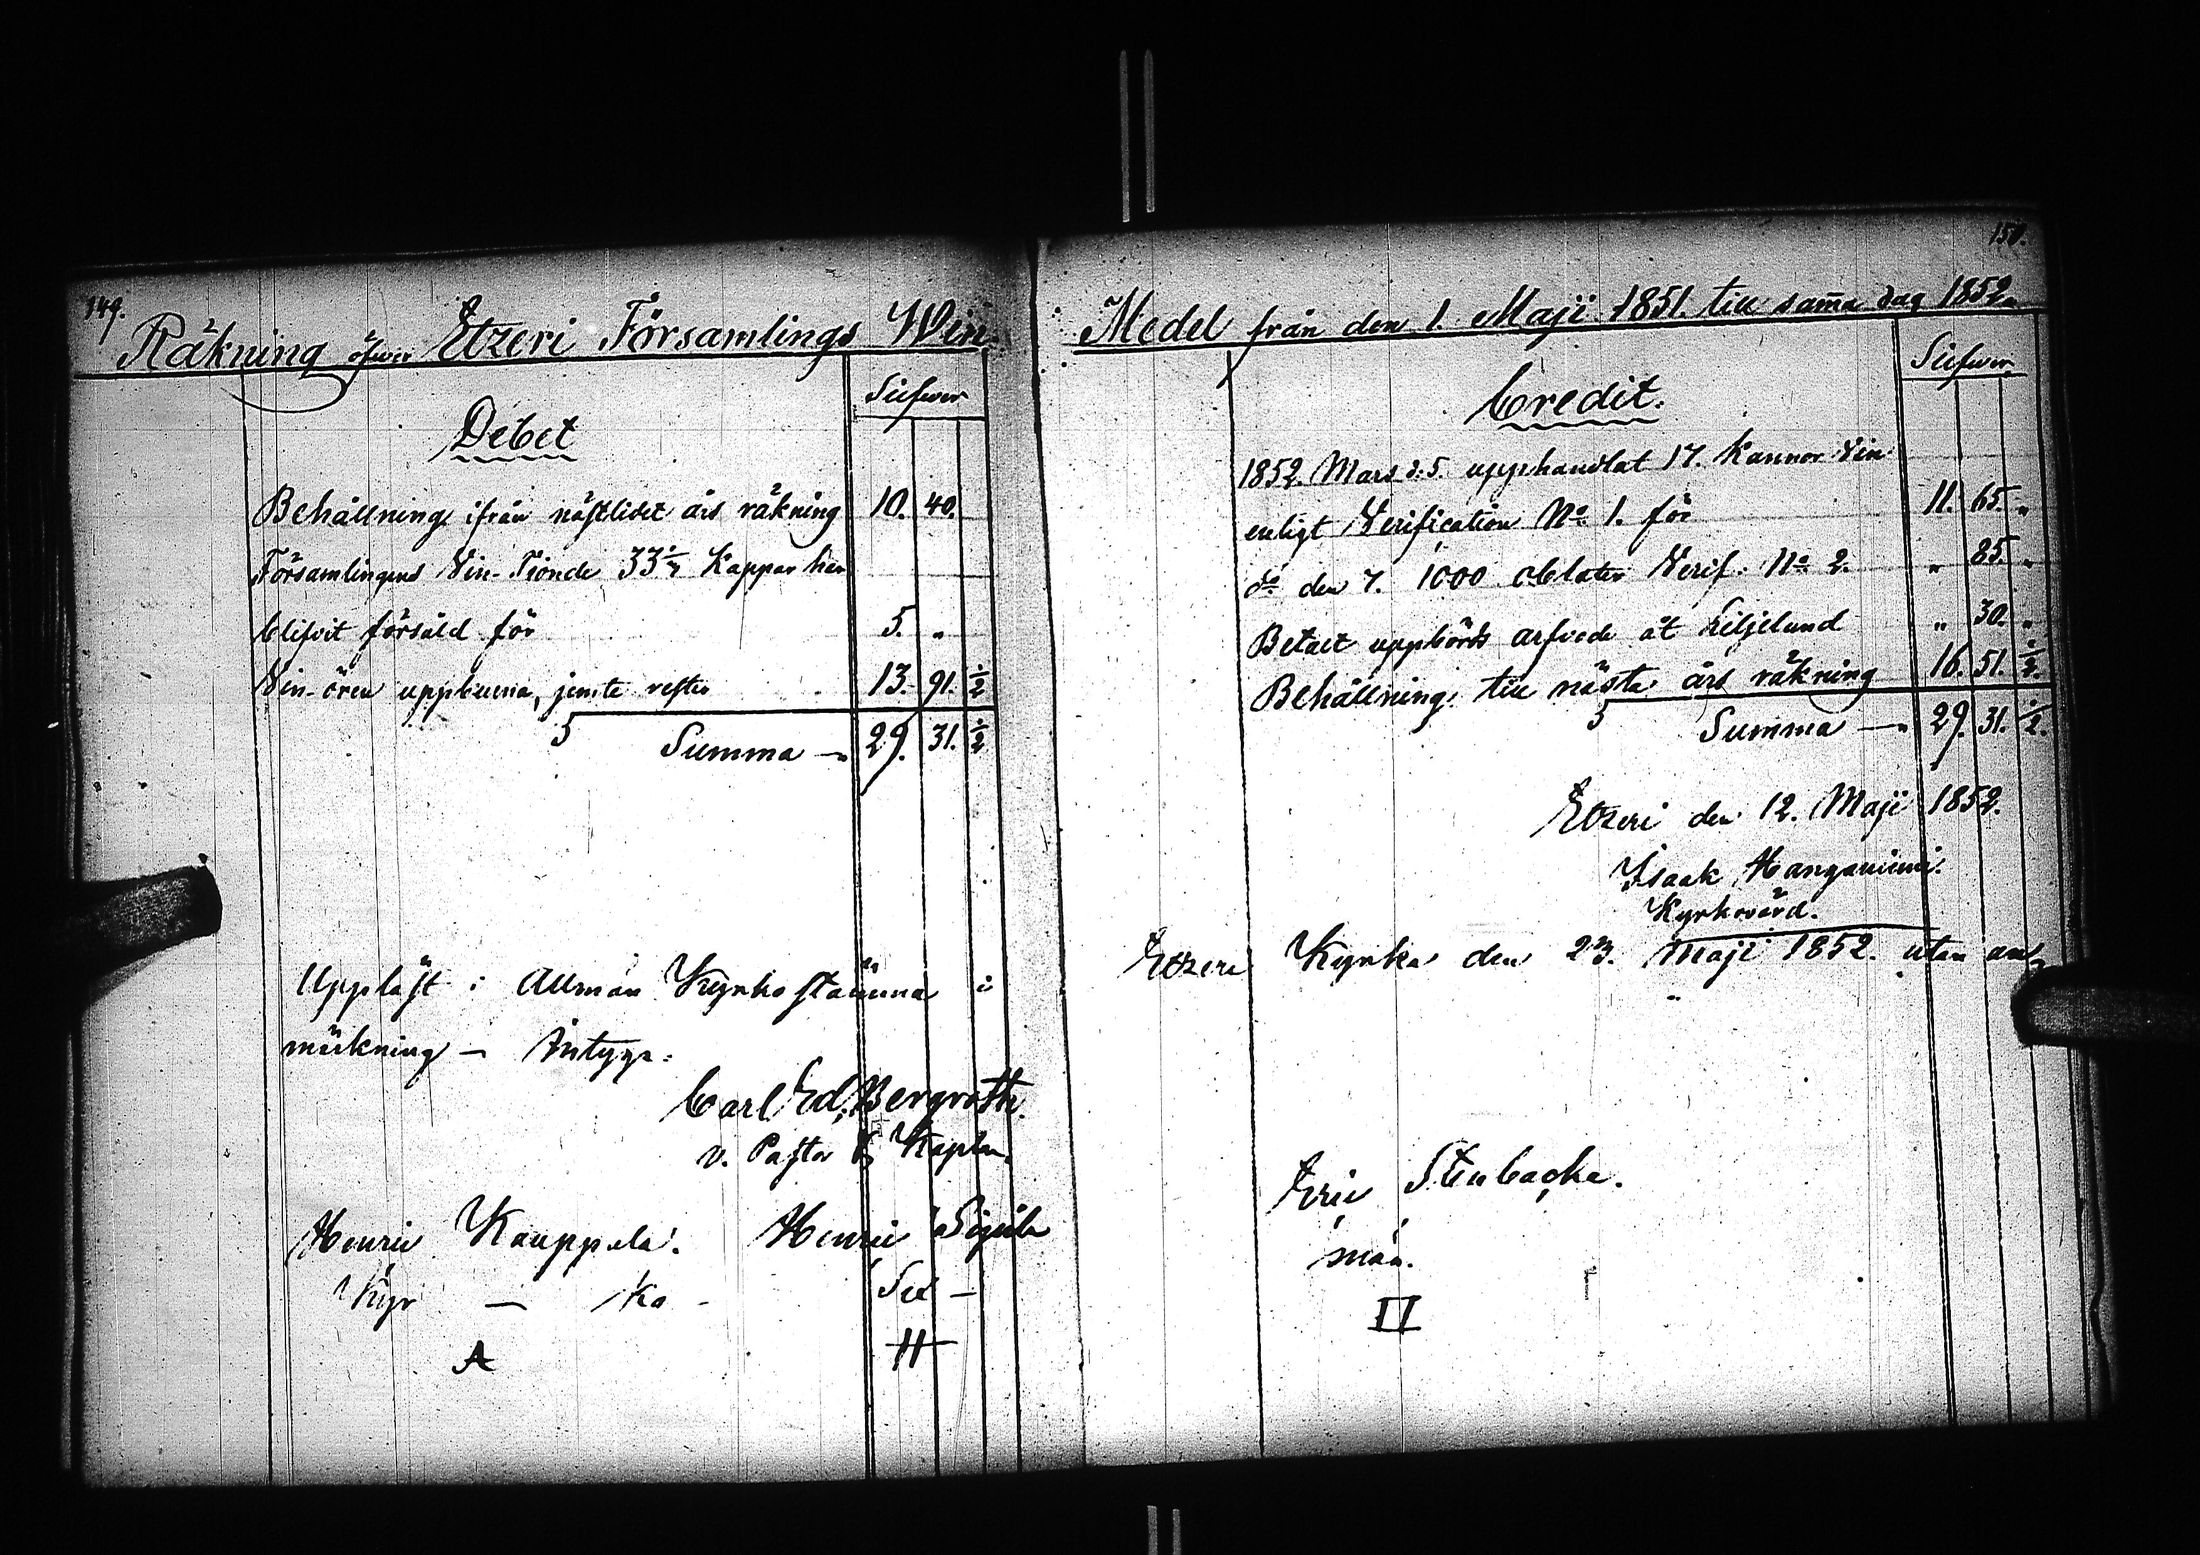 149.
Räkning öfwer Etzeri Församlings Win
Silfwer
Debet
Behållning ifrån nästlidet års räkning 10. 40.
Församlingens Vin-Tionde 33 1/2 Kappar har
blifvit försåld för 5. "
Vin-ören uppburna, jemte rester 13. 91. 1/2
Summa — 29. 31. 1/2
Uppläst i Allmän Kyrkostämma i
märkning — Intyga:
Carl Ed. Bergroth.
v. Pastor & Kaplan.
Henric Kauppila. Henric
Kyr — ko - Sex —
A H
150.
Medel från den 1. Maji 1851. till samma dag 1852.
Silfwer
Credit.
1852. Mars d. 5. upphandlat 17. Kannor Vin
enligt Verification No 1. för 11. 65. "
do den 7. 1000 oblater Verif: No 2. " 85. "
Betalt uppbörds arfvode åt Liljelund " 30. "
Behållning till nästa års räkning 16. 51. 1/2.
Summa — 29. 31. 1/2.
Etzeri den 12. Maji 1852.
Isaak Hanganiemi.
Kyrkovärd.
Etzeri Kyrka den 23. Maji 1852. utan an-
Eric Stenbacka.
män.
II